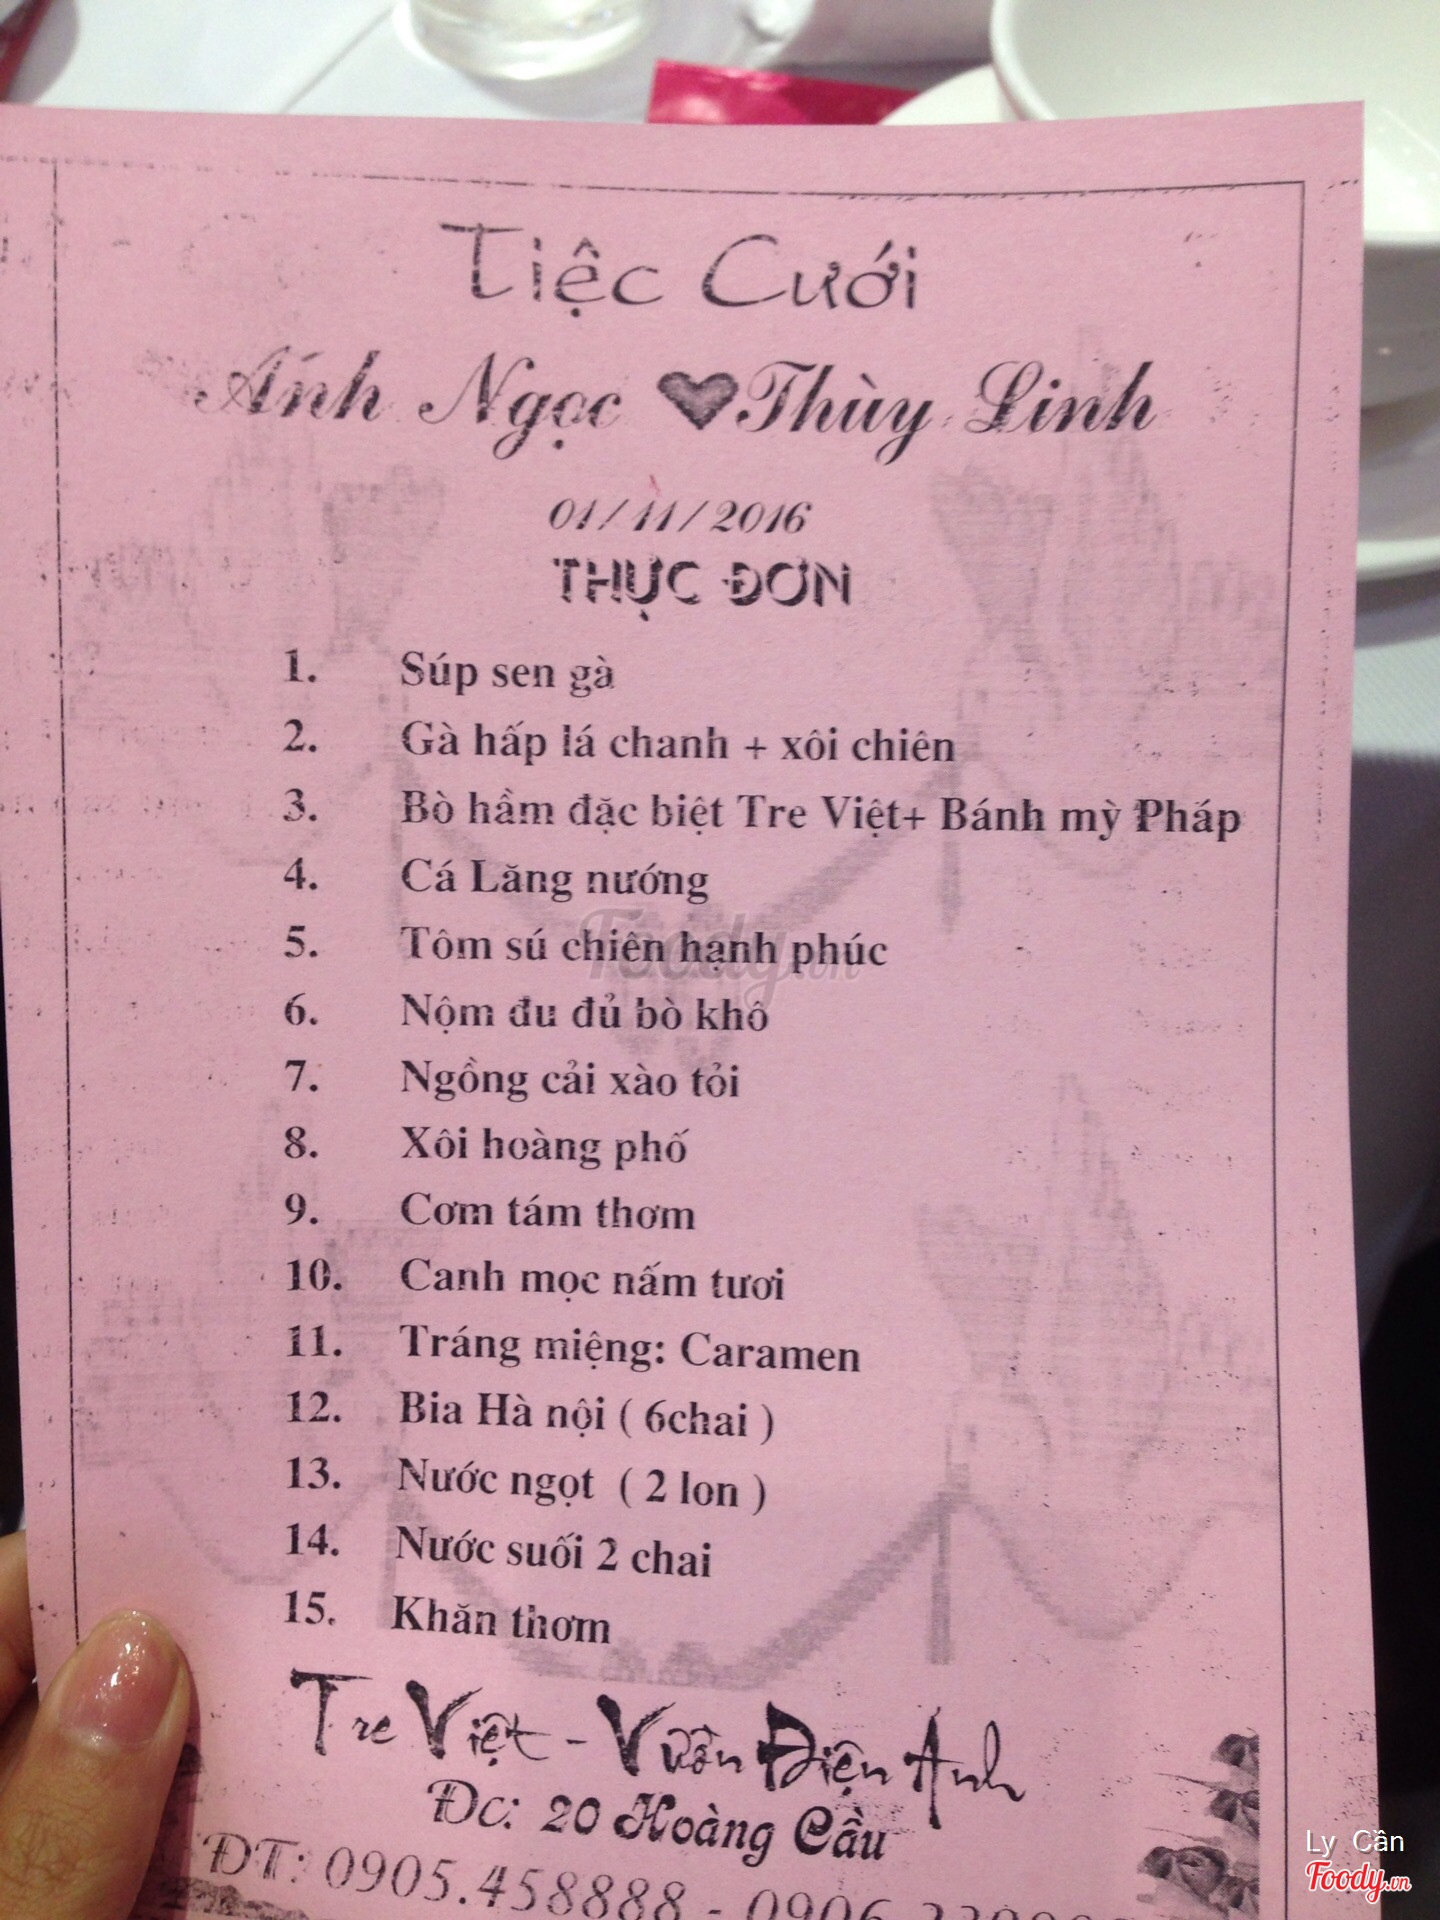 Tiệc Cưới
Ánh Ngọc ♥ Thùy Linh
01/11/2016
THỰC ĐƠN
1. Súp sen gà
2. Gà hấp lá chanh + xôi chiên
3. Bò hầm đặc biệt Tre Việt+ Bánh mỳ Pháp
4. Cá Lăng nướng
5. Tôm sú chiên hạnh phúc
6. Nộm đu đủ bò khô
7. Ngồng cải xào tỏi
8. Xôi hoàng phố
9. Cơm tám thơm
10. Canh mọc nấm tươi
11. Tráng miệng: Caramen
12. Bia Hà nội ( 6chai )
13. Nước ngọt ( 2 lon )
14. Nước suối 2 chai
15. Khăn thơm
Tre Việt - Vườn Điện Ảnh
Đc: 20 Hoàng Cầu
ĐT: 0905.458888 - 0906.
Foody.vn
Ly Cần
Foody.vn